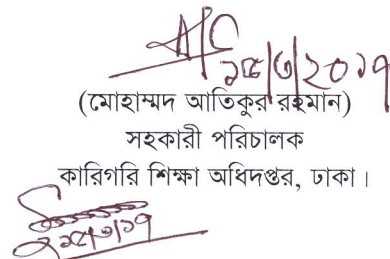 ১৫/৩/২০১৭
(মোহাম্মদ আতিকুর রহমান)
সহকারী পরিচালক
কারিগরি শিক্ষা অধিদপ্তর, ঢাকা।